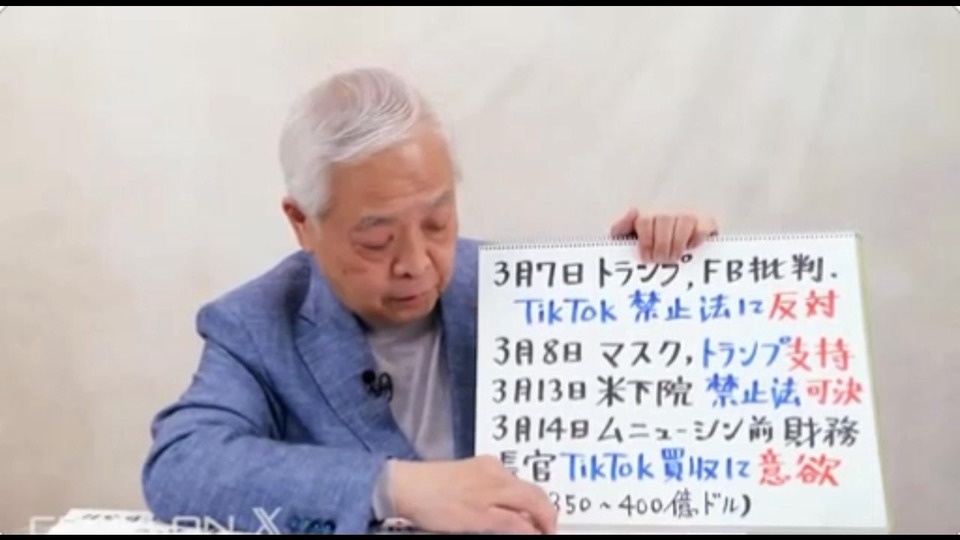 3月7日 トランプ,FB批判.
TikTok 禁止法に反対
3月8日 マスク,トランプ支持
3月13日 米下院 禁止法可決
3月14日ムニューシン前財務
長官TikTok買収に意欲
350~400億ドル)